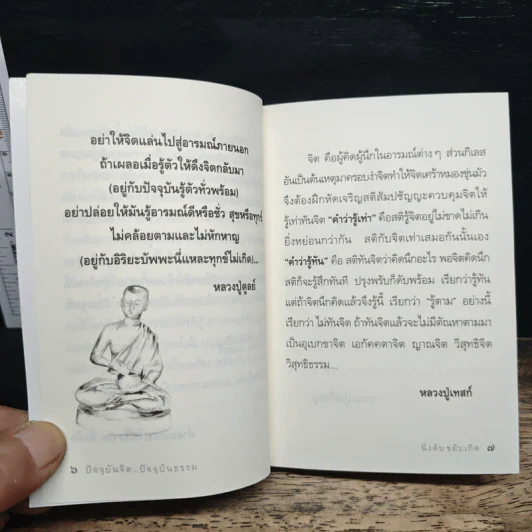 อย่าให้จิตแล่นไปสู่อารมณ์ภายนอก
ถ้าเผลอเมื่อรู้ตัวให้ดึงจิตกลับมา
(อยู่กับปัจจุบันรู้ตัวทั่วพร้อม)
อย่าปล่อยให้มันรู้อารมณ์ดีหรือชั่ว สุขหรือทุกข์
ไม่คล้อยตามและไม่หักหาญ
(อยู่กับอิริยะบัพพะนี่แหละทุกข์ไม่เกิด)...
หลวงปู่ดูลย์
๖ ปัจจุบันจิต...ปัจจุบันธรรม
จิต คือผู้คิดผู้นึกในอารมณ์ต่าง ๆ ส่วนกิเลส
อันเป็นต้นเหตุมาครอบงำจิตทำให้จิตเศร้าหมองขุ่นมัว
จึงต้องฝึกหัดเจริญสติสัมปชัญญะควบคุมจิตให้
รู้เท่าทันจิต "คำว่ารู้เท่า" คือสติรู้จิตอยู่ไม่ขาดไม่เกิน
ยิ่งหย่อนกว่ากัน สติกับจิตเท่าเสมอกันนั้นเอง
"คำว่ารู้ทัน" คือ สติทันจิตว่าคิดนึกอะไร พอจิตคิดนึก
สติก็จะรู้สึกทันที ปรุงพรับก็ดับพร้อม เรียกว่ารู้ทัน
แต่ถ้าจิตนึกคิดแล้วจึงรู้นี้ เรียกว่า "รู้ตาม" อย่างนี้
เรียกว่า ไม่ทันจิต ถ้าทันจิตแล้วจะไม่มีตัณหาตามมา
เป็นอุเบกขาจิต เอกัคคตาจิต ญาณจิต วิสุทธิจิต
วิสุทธิธรรม...
หลวงปู่เทสก์
พึ่งดับขยับเกิด ๗